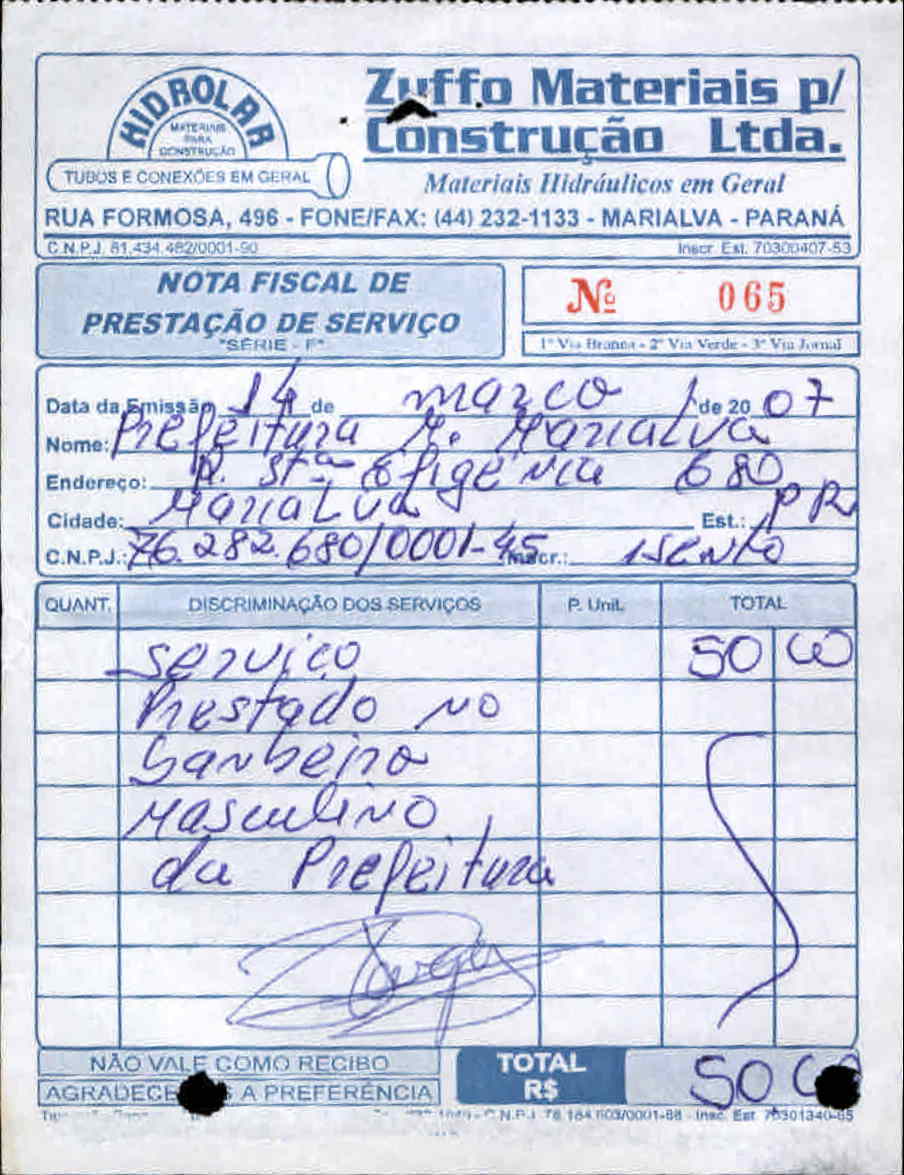 HIDROLAR
MATERIAIS
PARA
CONSTRUÇÃO
TUBOS E CONEXÕES EM GERAL
Zuffo Materiais p/
Construção Ltda.
Materiais Hidráulicos em Geral
RUA FORMOSA, 496 - FONE/FAX: (44) 232-1133 - MARIALVA - PARANÁ
C.N.P.J. 81.434.482/0001-90 Inscr. Est. 70300407-53
NOTA FISCAL DE
PRESTAÇÃO DE SERVIÇO
"SÉRIE - F"
Nº 065
1ª Via Branca - 2ª Via Verde - 3ª Via Jornal
Data da Emissão 14 de março de 20 07
Nome: Prefeitura M. Marialva
Endereço: R. Stª Efigênia 680
Cidade: Marialva Est.: PR
C.N.P.J.: 76.282.680/0001-45 Inscr.: isento
QUANT. DISCRIMINAÇÃO DOS SERVIÇOS P. Unit. TOTAL
serviço 50 00
Prestado no
banheiro
Masculino
da Prefeitura
NÃO VALE COMO RECIBO
AGRADECE A PREFERÊNCIA
TOTAL
R$ 50 00
C.N.P.J. 78.184.603/0001-88 - Insc. Est. 70301340-65